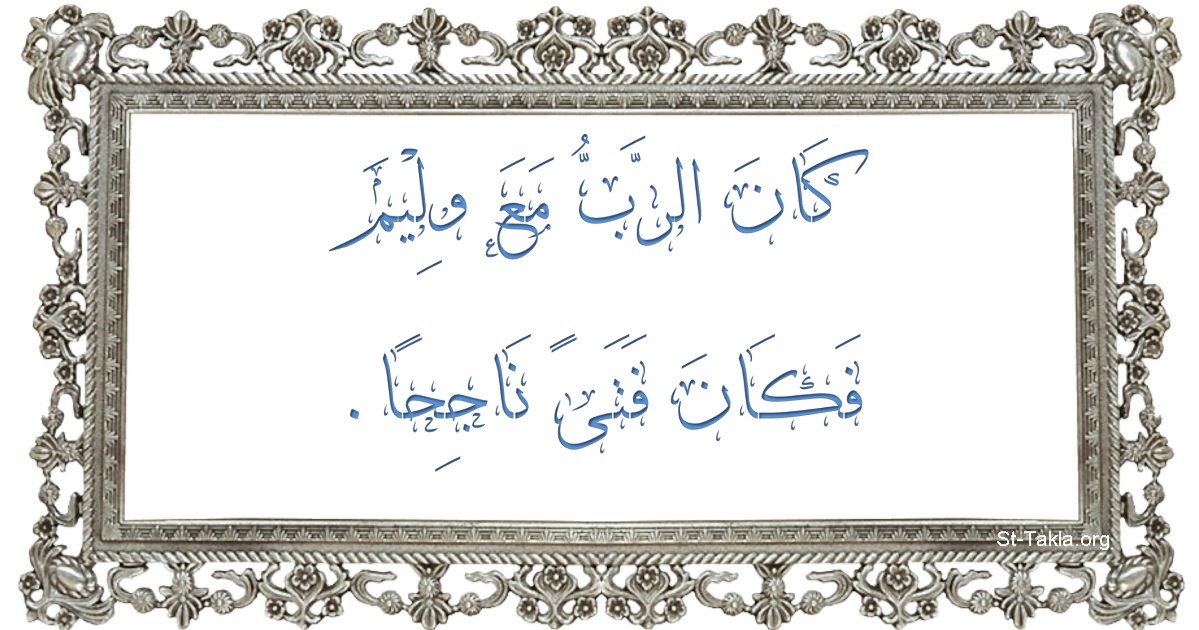 كَانَ الرَّبُّ مَعَ وِلِيَمْ
فَكَانَ فَتَىً نَاجِحًا .
St-Takla.org